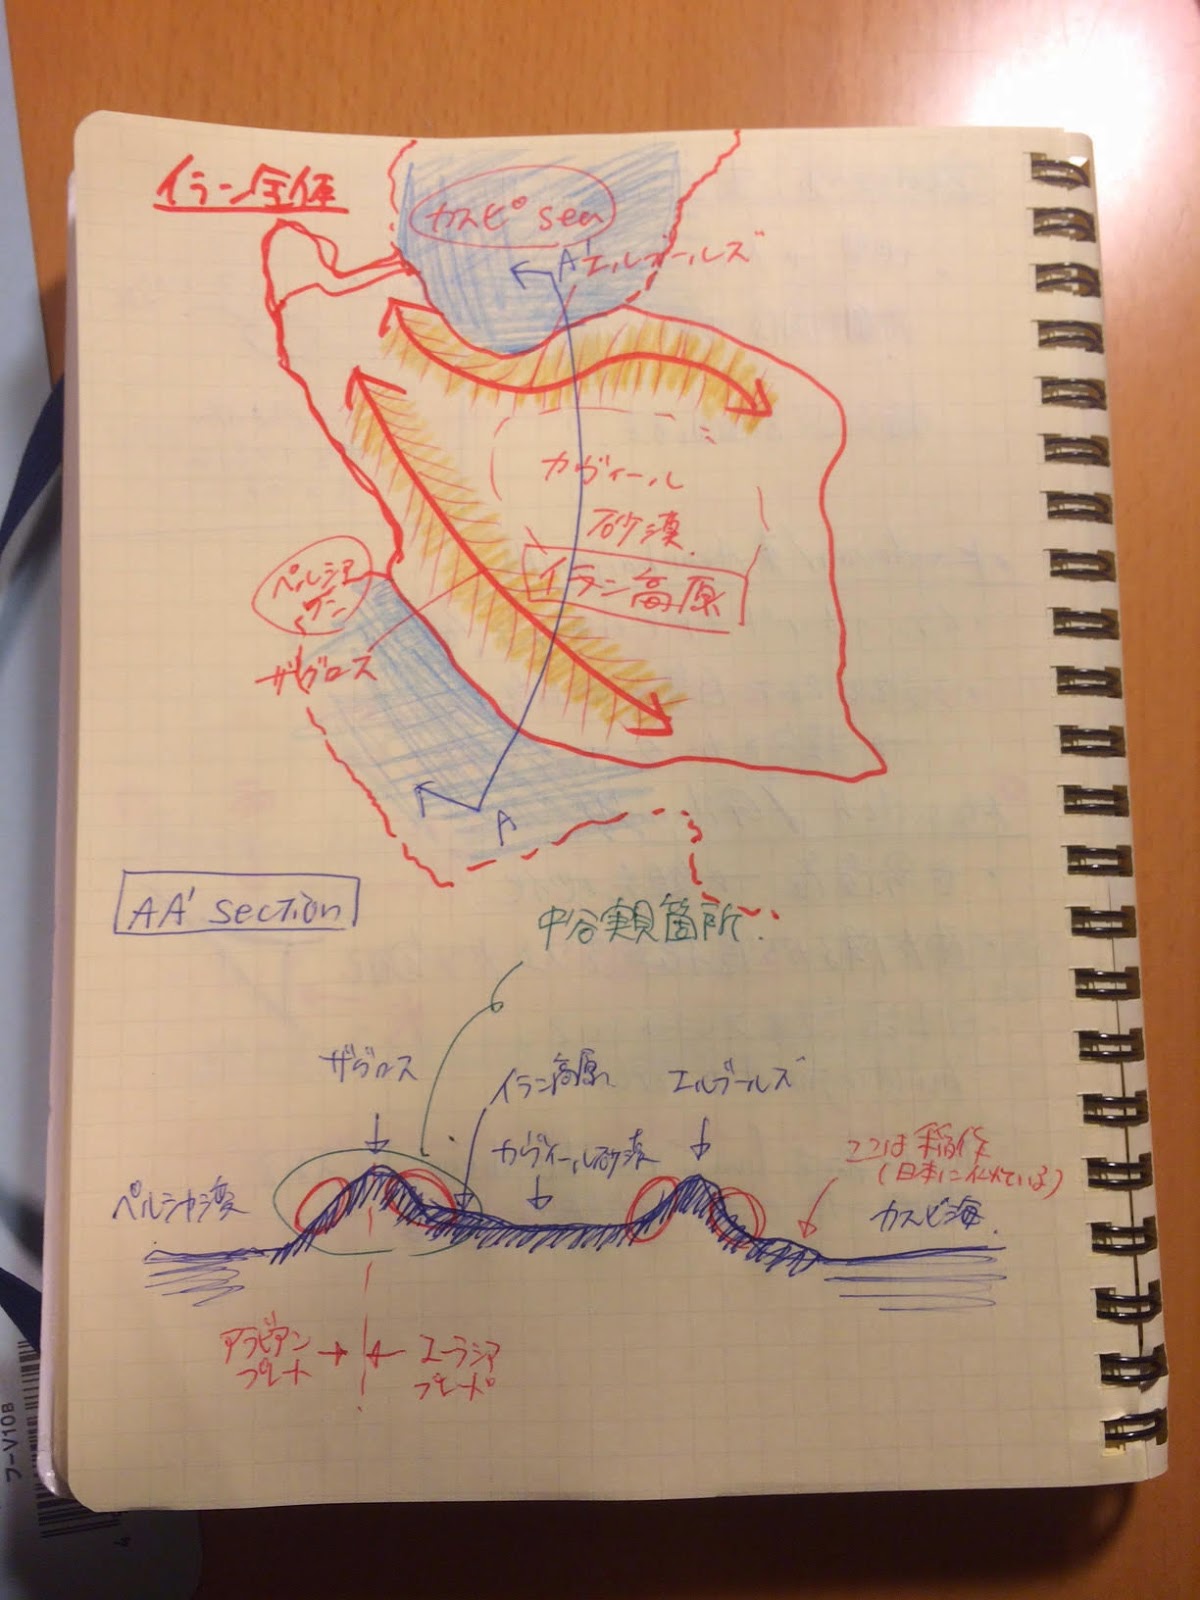 イラン全体
カスピ sea
A' エルブールズ
カヴィール
砂漠
イラン高原
ペルシア
ワン
ザグロス
A
AA' section
中谷実見箇所
ザグロス
イラン高原
エルブールズ
カヴィール砂漠
ここは稲作
(日本に似ている)
ペルシャ湾
カスピ海
アラビアン
プレート
ユーラシア
プレート
フーV10B